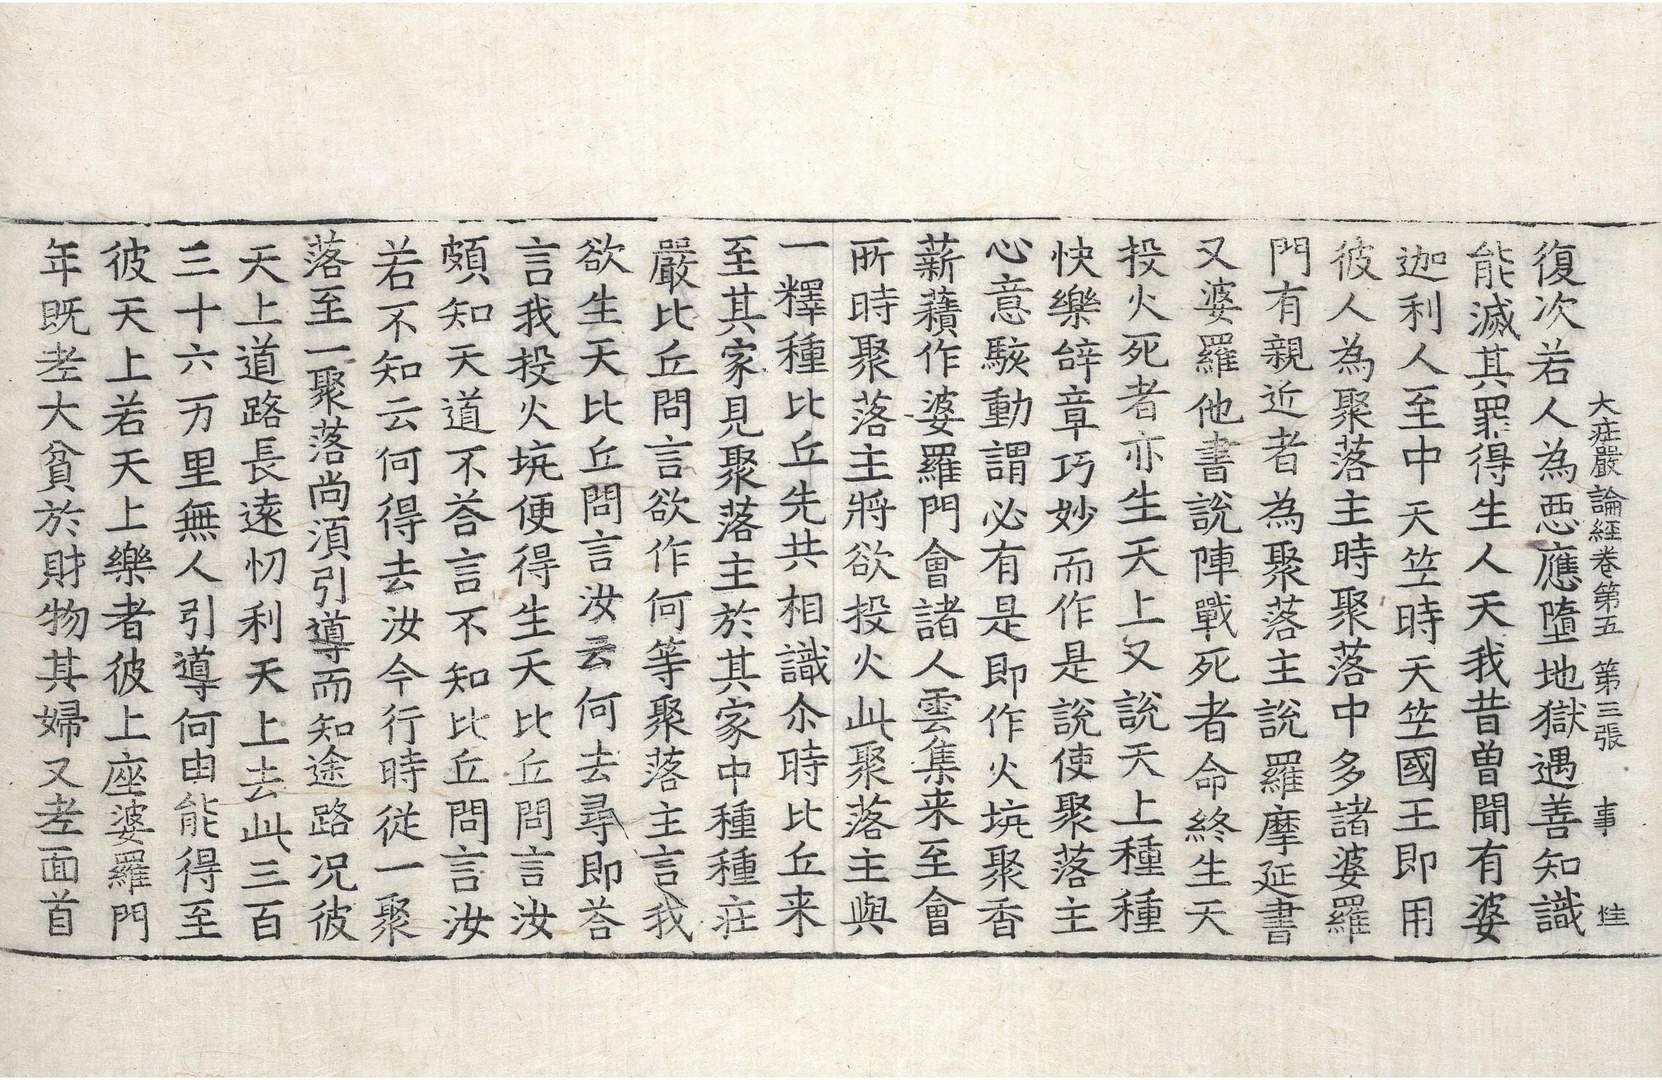 大荘嚴論經卷第五　第三張　事　隹
復次若人為惡應墮地獄遇善知識
能滅其罪得生人天我昔曾聞有婆
迦利人至中天竺時天竺國王即用
彼人為聚落主時聚落中多諸婆羅
門有親近者為聚落主說羅摩延書
又婆羅他書說陣戰死者命終生天
投火死者亦生天上又說天上種種
快樂辝章巧妙而作是說使聚落主
心意駭動謂必有是即作火坑聚香
薪𧂐作婆羅門會諸人雲集来至會
所時聚落主將欲投火此聚落主與
一釋種比丘先共相識尒時比丘来
至其家見聚落主於其家中種種荘
嚴比丘問言欲作何等聚落主言我
欲生天比丘問言汝云何去尋即荅
言我投火坑便得生天比丘問言汝
頗知天道不荅言不知比丘問言汝
若不知云何得去汝今行時從一聚
落至一聚落尚湏引導而知途路况彼
天上道路長遠忉利天上去此三百
三十六万里無人引導何由能得至
彼天上若天上樂者彼上座婆羅門
年既老大貧於財物其婦又老面首